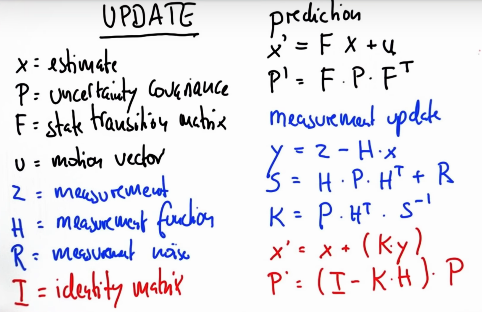 UPDATE
x = estimate
P = uncertainty covariance
F = state transition matrix
u = motion vector
Z = measurement
H = measurement function
R = measurement noise
I = identity matrix
prediction
x' = F x + u
P' = F · P · Fᵀ
measurement update
y = z - H · x
S = H · P · Hᵀ + R
K = P · Hᵀ · S⁻¹
x' = x + (K·y)
P' = (I - K·H) · P